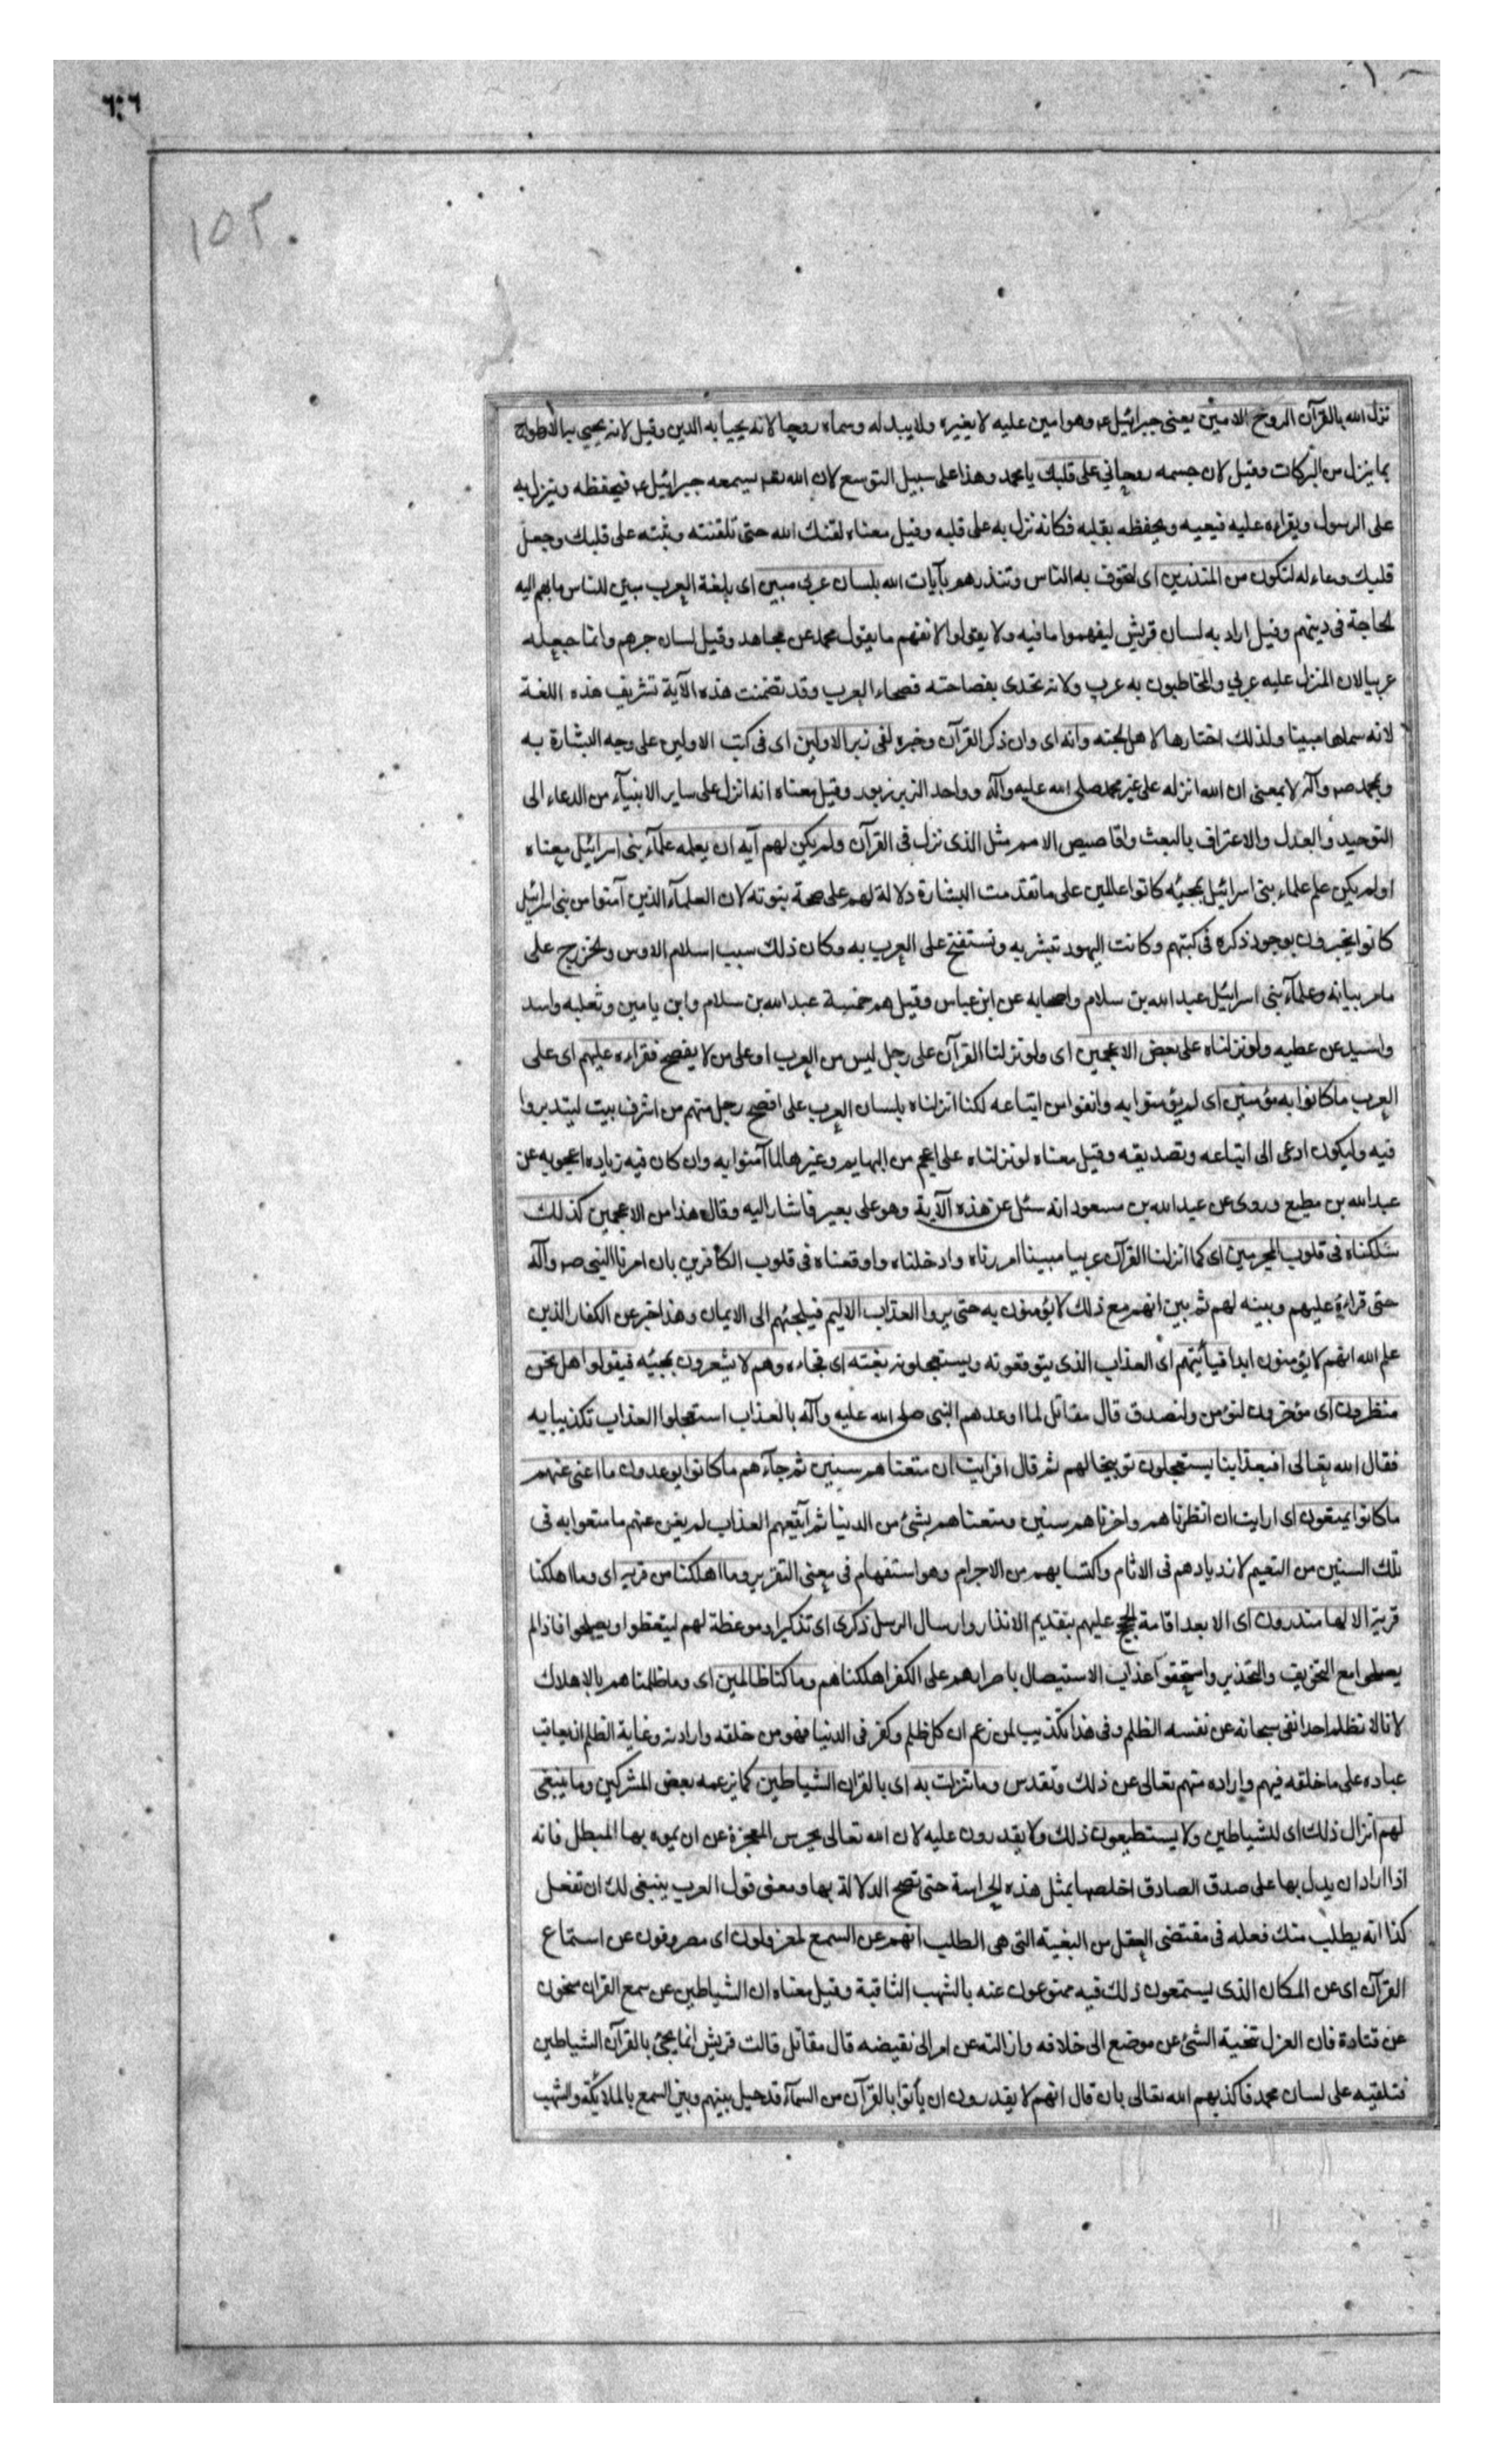 ٦٠٦
١٥٢
نزل الله بالقرآن الروح الامين يعنى جبرائيل ع وهو امين عليه لا يغيره ولا يبدله وسماه روحا لانه يحيا به الدين وقيل لانه يحيى به الارواح
بما ينزل من البركات وقيل لان جسمه روحانى على قلبك يا محمد وهذا على سبيل التوسع لان الله تعـ يسمعه جبرائيل ع فيحفظه وينزل به
على الرسول ويقراءه عليه فيعيه ويحفظه بقلبه فكانه نزل به على قلبه وقيل معناه لقنك الله حتى تلقنته وثبته على قلبك وجعل
قلبك وعاء له لتكون من المنذرين اى لتخوف به الناس وتنذرهم بآيات الله بلسان عربى مبين اى بلغة العرب مبين للناس ما بهم اليه
الحاجة فى دينهم وقيل اراد به لسان قريش ليفهموا ما فيه ولا يقولوا لا نفهم ما يقول محمد عن مجاهد وقيل لسان جرهم وانما جعله
عربيا لان المنزل عليه عربى والمخاطبون به عرب ولانه تحدى بفصاحته فصحاء العرب وقد تضمنت هذه الآية تشريف هذه اللغة
لانه سماها مبينا ولذلك اختارها لاهل الجنة وانه اى وان ذكر القرآن وخبره لفى زبر الاولين اى فى كتب الاولين على وجه البشارة به
وبمحمد صـ وآله لا بمعنى ان الله انزله على غير محمد صلى الله عليه وآله وواحد الزبر زبور وقيل معناه انه انزل على ساير الانبيآء من الدعاء الى
التوحيد والعدل والاعتراف بالبعث واقاصيص الامم مثل الذى نزل فى القرآن ولم يكن لهم آيه ان يعلمه علمآء بنى اسرائيل معناه
اولم يكن علم علماء بنى اسرائيل بمجيئه كانوا عالمين على ما تقدمت البشارة دلالة لهم على صحة نبوته لان العلمآء الذين آمنوا من بنى اسرائيل
كانوا يخبرون بوجود ذكره فى كتبهم وكانت اليهود تبشر به وتستفتح على العرب به وكان ذلك سبب اسلام الاوس والخزرج على
ما مر بيانه وعلمآء بنى اسرائيل عبد الله بن سلام واصحابه عن ابن عباس وقيل هم خمسة عبد الله بن سلام وابن يامين وثعلبه واسد
واسيد عن عطيه ولو نزلناه على بعض الاعجمين اى ولو نزلنا القرآن على رجل ليس من العرب او على من لا يفصح فقراءه عليهم اى على
العرب ما كانوا به مؤمنين اى لم يؤمنوا به وانفوا من اتباعه لكنا انزلناه بلسان العرب على افصح رجل منهم من اشرف بيت ليتدبروا
فيه وليكون ادعى الى اتباعه وتصديقه وقيل معناه لو نزلناه على اعجم من البهايم وغيرها لما آمنوا به وان كان فيه زياده اعجوبه عن
عبد الله بن مطيع وروى عن عبد الله بن مسعود انه سئل عن هذه الآية وهو على بعير فاشار اليه وقال هذا من الاعجمين كذلك
سلكناه فى قلوب المجرمين اى كما انزلنا القرآن عربيا مبينا امررناه وادخلناه واوقعناه فى قلوب الكافرين بان امرنا النبى صـ وآله
حتى قراءه عليهم وبينه لهم ثم بين انهم مع ذلك لا يؤمنون به حتى يروا العذاب الاليم فيلجئهم الى الايمان وهذا خبر عن الكفار الذين
علم الله انهم لا يؤمنون ابدا فيأتيهم اى العذاب الذى يتوقعونه ويستعجلونه بغتة اى فجاءه وهم لا يشعرون بمجيئه فيقولوا هل نحن
منظرون اى مؤخرون لنؤمن ولنصدق قال مقاتل لما اوعدهم النبى صلى الله عليه وآله بالعذاب استعجلوا العذاب تكذيبا به
فقال الله تعالى افبعذابنا يستعجلون توبيخا لهم ثم قال افرايت ان متعناهم سنين ثم جآءهم ما كانوا يوعدون ما اغنى عنهم
ما كانوا يمتعون اى ارايت ان انظرناهم واخرناهم سنين ومتعناهم بشئ من الدنيا ثم آتيهم العذاب لم يغن عنهم ما متعوا به فى
تلك السنين من النعيم لازديادهم فى الاثام واكتسابهم من الاجرام وهو استفهام فى معنى التقرير وما اهلكنا من قرية اى وما اهلكنا
قرية الا لها منذرون اى الا بعد اقامة الحجج عليهم بتقديم الانذار وارسال الرسل ذكرى اى تذكيرا وموعظة لهم ليتعظوا ويصلحوا فاذا لم
يصلحوا مع التخويف والتحذير واستحقوا عذاب الاستيصال باصرارهم على الكفر اهلكناهم وما كنا ظالمين اى وما ظلمناهم بالاهلاك
لانا لا نظلم احدا نفى سبحانه عن نفسه الظلم وفى هذا تكذيب لمن زعم ان كل ظلم وكفر فى الدنيا فهو من خلقه وارادته وغاية الظلم ان يعاقب
عباده على ما خلقه فيهم واراده منهم تعالى عن ذلك وتقدس وما تنزلت به اى بالقران الشياطين كما يزعمه بعض المشركين وما ينبغى
لهم انزال ذلك اى للشياطين ولا يستطيعون ذلك ولا يقدرون عليه لان الله تعالى يحرس المعجزة عن ان يموه بها المبطل فانه
اذا اراد ان يدل بها على صدق الصادق اخلصها بمثل هذه الحراسة حتى تصح الدلالة بها ومعنى قول العرب ينبغى لك ان تفعل
كذا انه يطلب منك فعله فى مقتضى العقل من البغية التى هى الطلب انهم عن السمع لمعزولون اى مصروفون عن استماع
القرآن اى عن المكان الذى يستمعون ذلك فيه ممنوعون عنه بالشهب الثاقبة وقيل معناه ان الشياطين عن سمع القران منحون
عن قتادة فان العزل تنحية الشئ عن موضع الى خلافه وازالته عن امر الى نقيضه قال مقاتل قالت قريش انما يجئ بالقرآن الشياطين
فتلقيه على لسان محمد فاكذبهم الله تعالى بان قال انهم لا يقدرون ان يأتوا بالقرآن من السمآء قد حيل بينهم وبين السمع بالملائكة والشهب